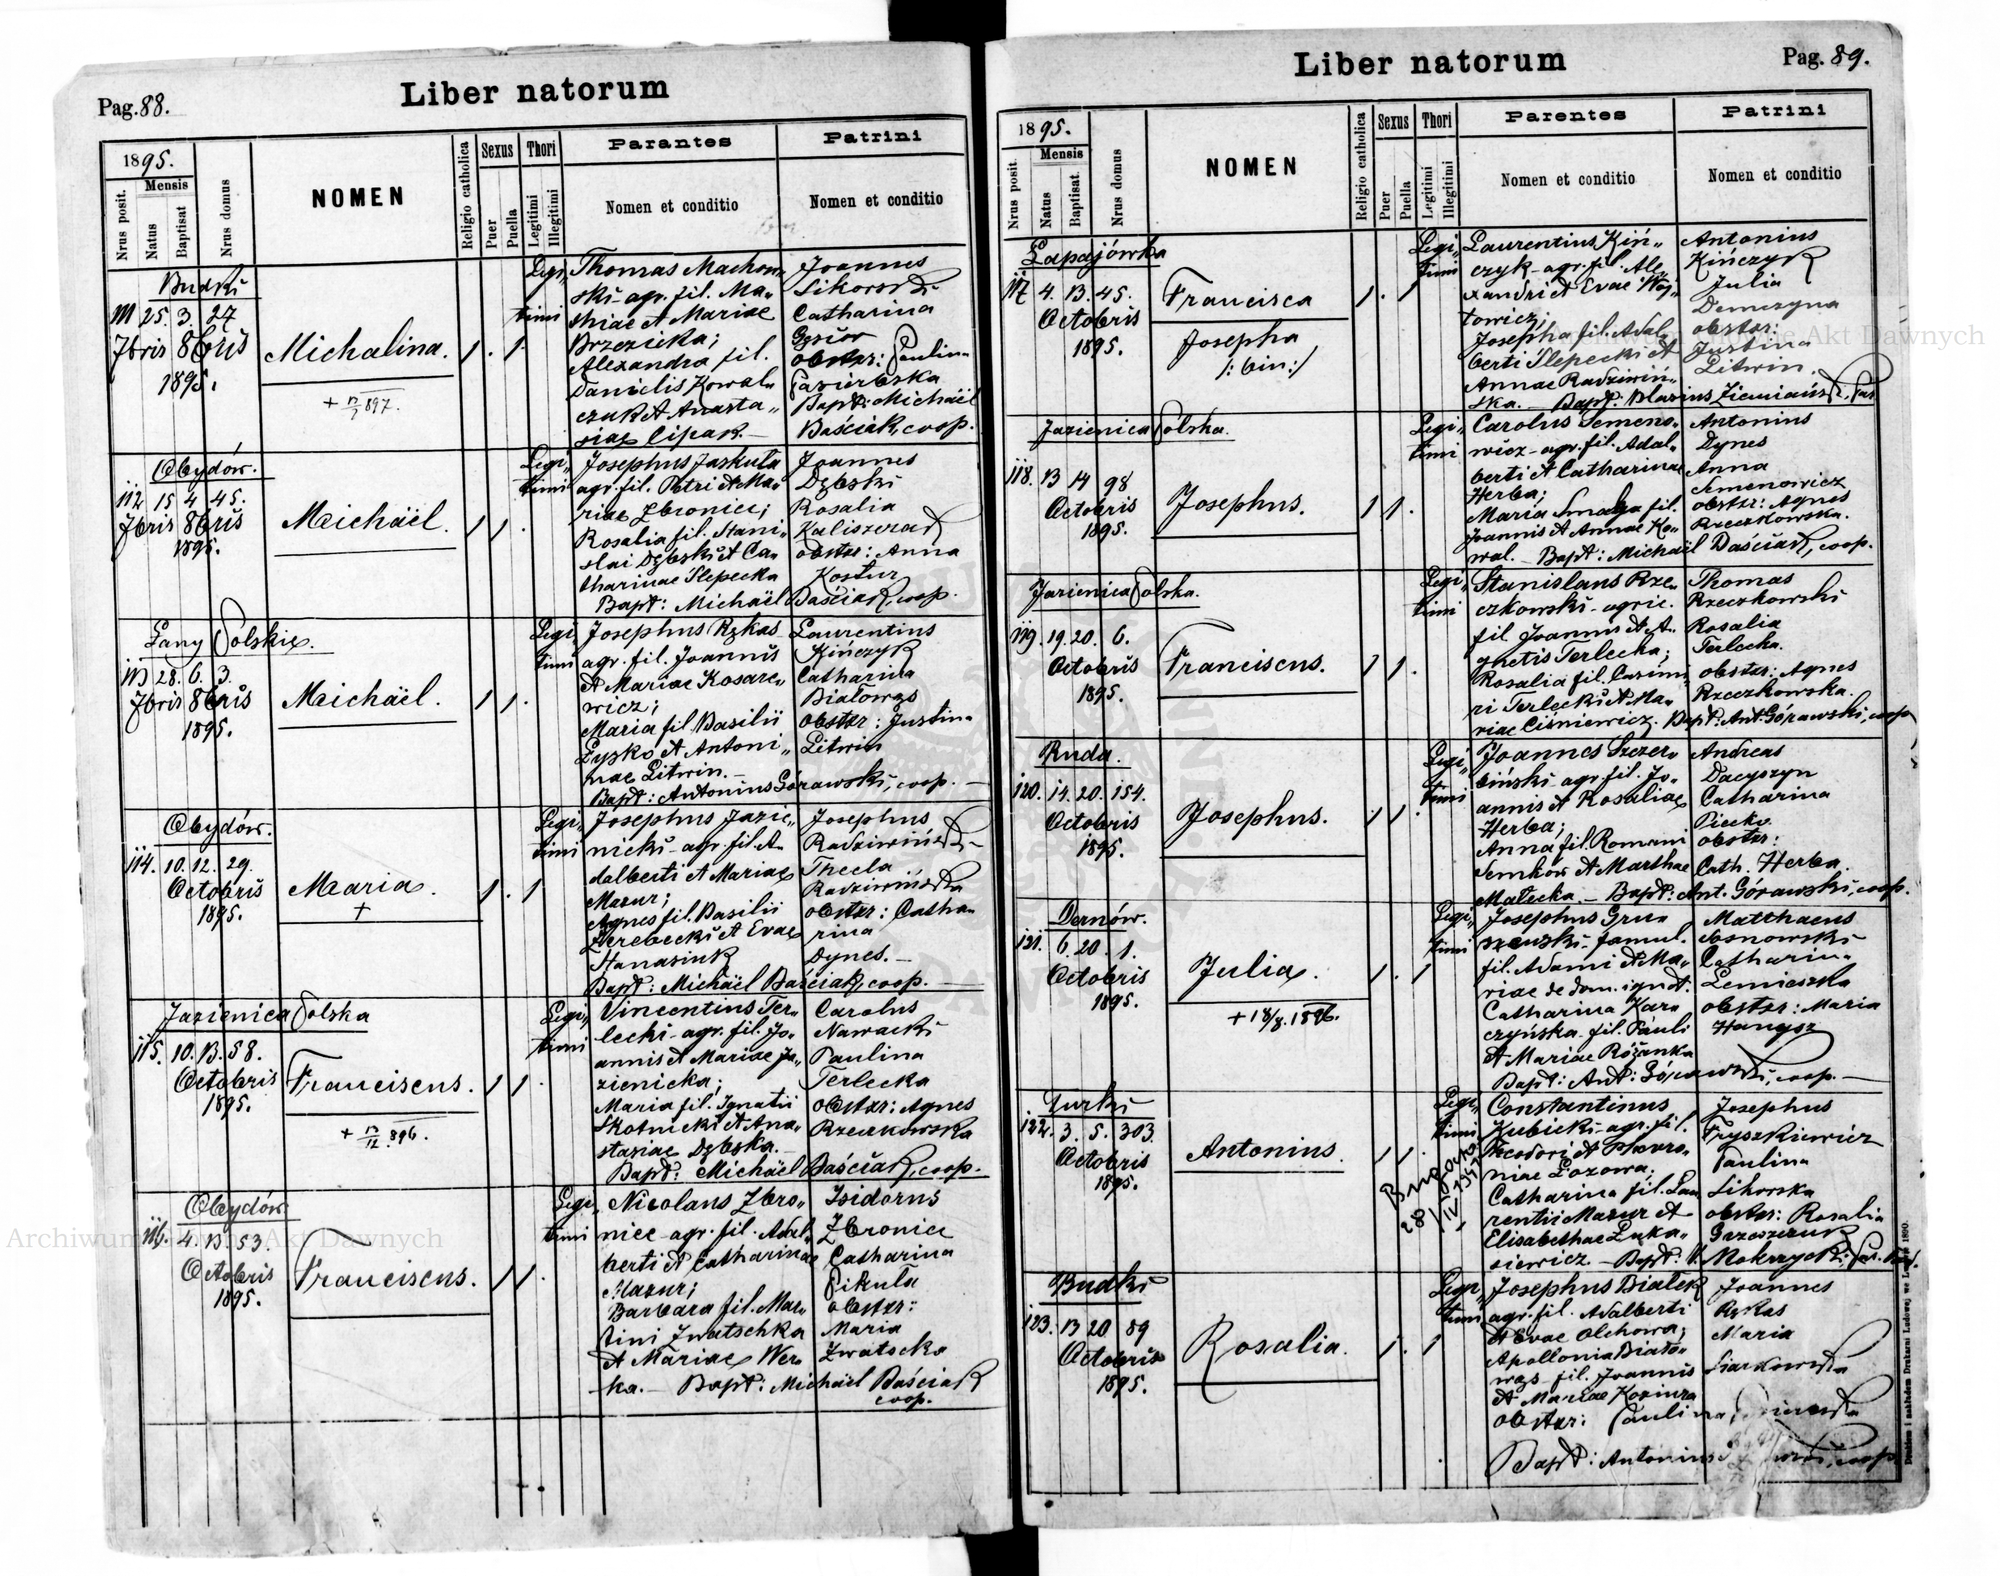 Pag. 88.
Liber natorum
1895.
Mensis
Nrus posit.
Natus
Baptisat
Nrus domus
NOMEN
Religio catholica
Sexus
Puer
Puella
Thori
Legitimi
Illegitimi
Parantes
Nomen et conditio
Patrini
Nomen et conditio
Budki
111 25. 3. 27
7bris 8bris
1895.
Michalina.
1. 1.
Legi„
timi
Thomas Machow„
ski agr. fil. Ma„
thiae et Mariae
Brzezicka;
Alexandra fil.
Danielis Kowal„
czuk et Anasta„
siae Cipak.
Joannes
Sikorski
Catharina
obstr: Paulina
Bapt: Michaël
Baściak, coop.
Obydów.
112 15 4 45.
7bris 8bris
1895.
Michaël.
1 1.
Legi„
timi
Josephus Jaskuła
agr. fil. Petri et Ma„
riae Zbronice;
Rosalia fil. Stani„
slai Dębski et Ca„
tharinae Slepecka
Bapt: Michaël Baściak, coop.
Joannes
Dębski
Rosalia
Kaliszczak
obstr: Anna
Kostur
Łany Polskie.
113 28. 6. 3.
7bris 8bris
1895.
Michaël.
1 1.
Legi
timi
Josephus Rękas
agr. fil. Joannis
et Mariae Kosare„
wicz;
Maria fil. Basilii
Łysko et Antoni„
nae Litwin.
Bapt: Antonius Górawski, coop.
Laurentius
Kińczyk
Catharina
Białowąs
obstr: Justina
Litwin
Obydów.
114. 10. 12. 29.
Octobris
1895.
Maria.
+
1. 1
Legi„
timi
Josephus Jazie„
nicki agr. fil. A„
dalberti et Mariae
Mazur;
Agnes fil. Basilii
Derebecki et Evae
Hanasiuk
Bapt: Michaël Baściak, coop.
Josephus
Radziwiński
Thecla
Radziwińska
obstr: Catha„
rina
Dynes.
Jazienica Polska
115. 10. 13. 58.
Octobris
1895.
Franciscus.
+ 896.
1 1.
Legi„
timi
Vincentius Ter„
lecki agr. fil. Jo„
annis et Mariae Ja„
zienicka;
Maria fil. Ignatii
Skotnicki et Ana„
stasiae Dębska.
Bapt: Michaël Baściak, coop.
Carolus
Nawacki
Paulina
Terlecka
obstr: Agnes
Rzeczkowska
Obydów
116. 4. 13. 53.
Octobris
1895.
Franciscus.
1 1.
Legi„
timi
Nicolaus Zbro„
nice agr. fil. Adal„
berti et Catharinae
Mazur;
Barbara fil. Mar„
tini Zwatschka
et Mariae Wer„
ka. Bapt: Michaël Baściak
coop.
Isidorus
Zbronice
Catharina
Pikuła
obstr:
Maria
Zwatschka
Liber natorum
Pag. 89.
1895.
Mensis
Nrus posit
Natus
Baptisat.
Nrus domus
NOMEN
Religio catholica
Sexus
Puer
Puella
Thori
Legitimi
Illegitimi
Parentes
Nomen et conditio
Patrini
Nomen et conditio
Łapajówka
117 4. 13. 45.
Octobris
1895.
Francisca
Josepha
/: bin:/
1. 1
Legi„
timi
Laurentius Kiń„
czyk agr. fil. Ale„
xandri et Evae Woj„
towicz;
Josepha fil. Adal„
berti Slepecki et
Annae Radziwiń„
ska. Bapt: Blasius Ziemiański,
Antonius
Kińczyk
Julia
obstr:
Justina
Litwin.
Jazienica Polska.
118. 13 14 98
Octobris
1895.
Josephus.
1 1.
Legi„
timi
Carolus Semeno„
wicz agr. fil. Adal„
berti et Catharinae
Herba;
Maria Smaga fil.
Joannis et Annae Ko„
wal. Bapt: Michaël Baściak, coop.
Antonius
Dynes
Anna
Semenowicz
obstr: Agnes
Rzeczkowska.
Jazienica Polska.
119. 19. 20. 6.
Octobris
1895.
Franciscus.
1 1.
Legi
timi
Stanislaus Rze„
czkowski agric.
fil. Joannis et A„
gnetis Terlecka;
Rosalia fil. Casimi„
ri Terlecki et Ma„
riae Ciśniewicz. Bapt: Ant. Górawski, coop
Thomas
Rzeczkowski
Rosalia
Terlecka.
obstr: Agnes
Rzeczkowska.
Ruda.
120. 14. 20. 154.
Octobris
1895.
Josephus.
1 1.
Legi„
timi
Joannes Szczer„
biński agr. fil. Jo„
annis et Rosaliae
Herba;
Anna fil. Romani
Semkow et Marthae
Małecka. Bapt: Ant. Górawski, coop.
Andreas
Dacyszyn
Catharina
Piecko
obstr:
Cath. Herba.
Dernów.
121. 6. 20. 1.
Octobris
1895.
Julia.
+ 18/8. 1896.
1. 1
Legi„
timi
Josephus Gru„
szewski famul.
fil. Adami et Ma„
riae de dom. ignot:
Catharina Kar„
czyńska fil. Pauli
et Mariae Różanka
Bapt: Ant: Górawski, coop.
Matthaeus
Sosnowski
Catharina
Lemieszka
obstr: Maria
Hangsz
Turki
122. 3. 5. 303.
Octobris
1895.
Antonius.
1 1.
Legi„
timi
Constantinus
Kubicki agr. fil.
Theodori et Phevro„
niae Łozowa;
Catharina fil. Lau„
rentii Mazur et
Elisabethae Łuka„
siewicz. Bapt: V. Mokrzycki,
Josephus
Fryszkiewicz
Paulina
Sikorska
obstr: Rosalia
Grzeszczuk
Budki
123. 13 20 89
Octobris
1895.
Rosalia.
1. 1
Legi„
timi
Josephus Białek
agr. fil. Adalberti
et Evae Olchowa;
Apollonia Biało„
wąs fil. Joannis
et Mariae Koziura
obstr: Paulina
Bapt: Antonius coop.
Joannes
Rękas
Maria
Siarkowska